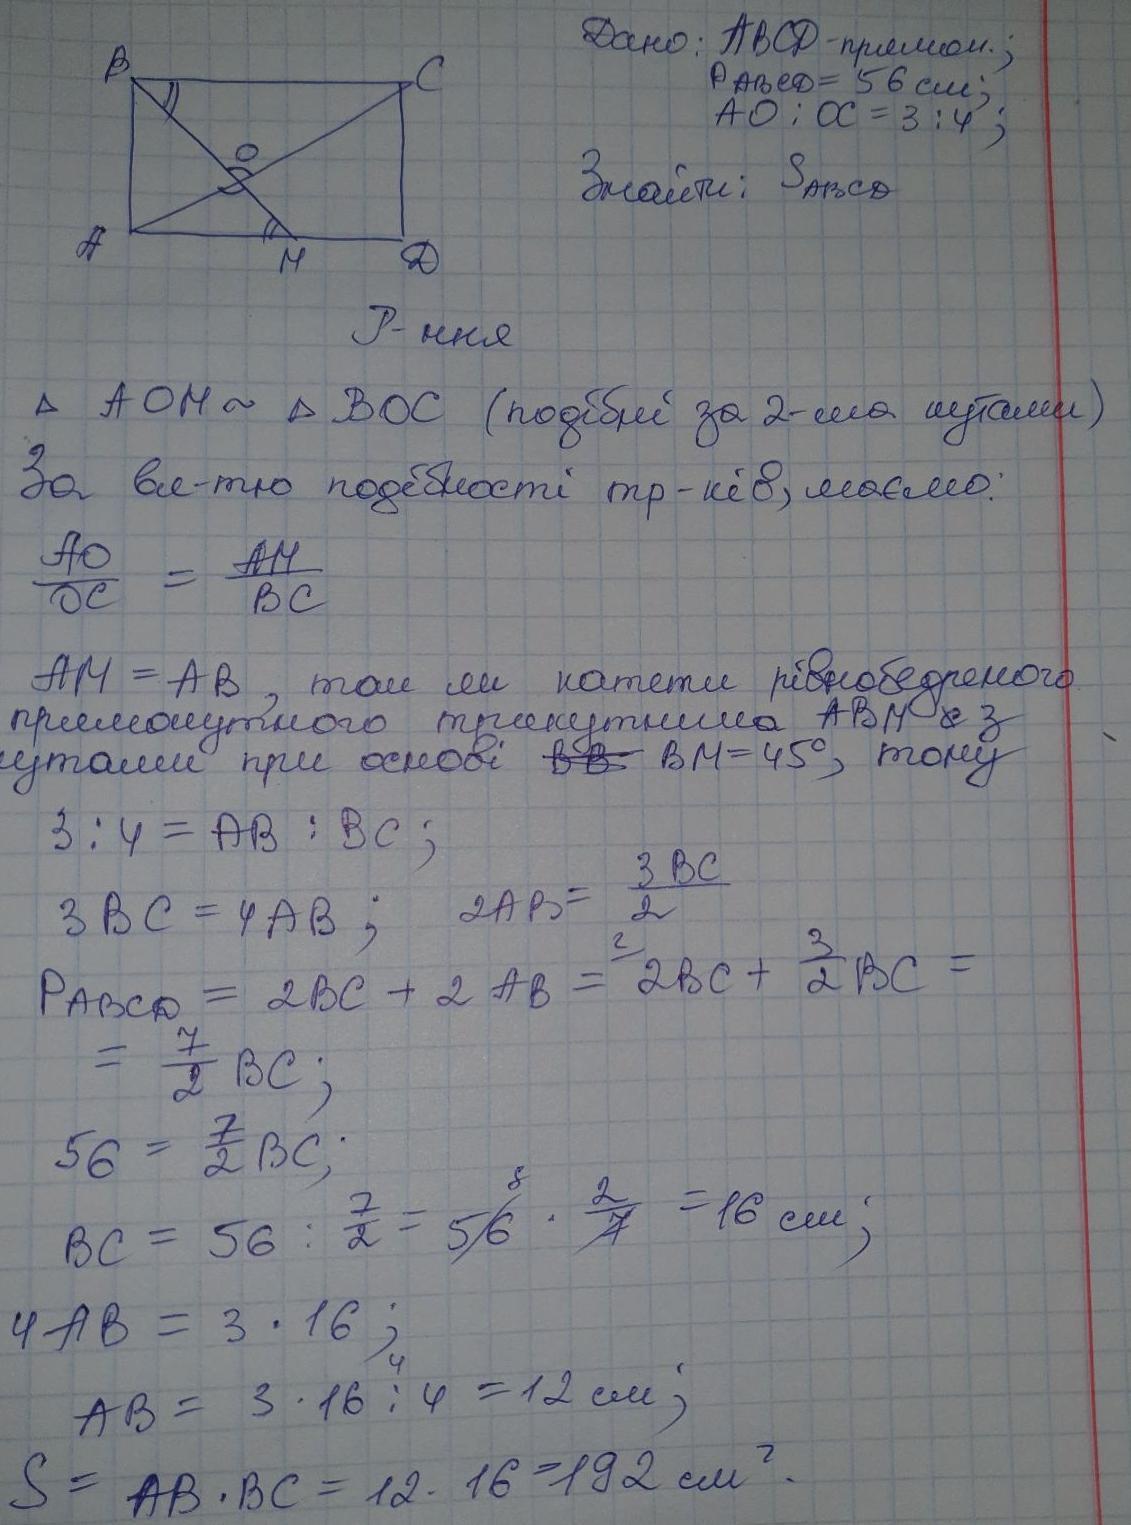 B
C
O
A
M
D
Дано: ABCD-прямок.;
P ABCD = 56 см;
AO : OC = 3 : 4;
Знайти: S ABCD
Р-ння
△ AOM ~ △ BOC (подібні за 2-ма кутами)
За вл-тю подібності тр-ків, маємо:
AO/OC = AM/BC
AM = AB, так як катети рівнобедреного
прямокутного трикутника ABM з
кутами при основі BM = 45°, тому
3 : 4 = AB : BC;
3BC = 4AB; 2AB = 3BC/2
P ABCD = 2BC + 2AB = 2BC + 3/2 BC =
= 7/2 BC;
56 = 7/2 BC;
BC = 56 : 7/2 = 56 · 2/7 = 16 см;
4AB = 3 · 16;
AB = 3 · 16 : 4 = 12 см;
S = AB · BC = 12 · 16 = 192 см².